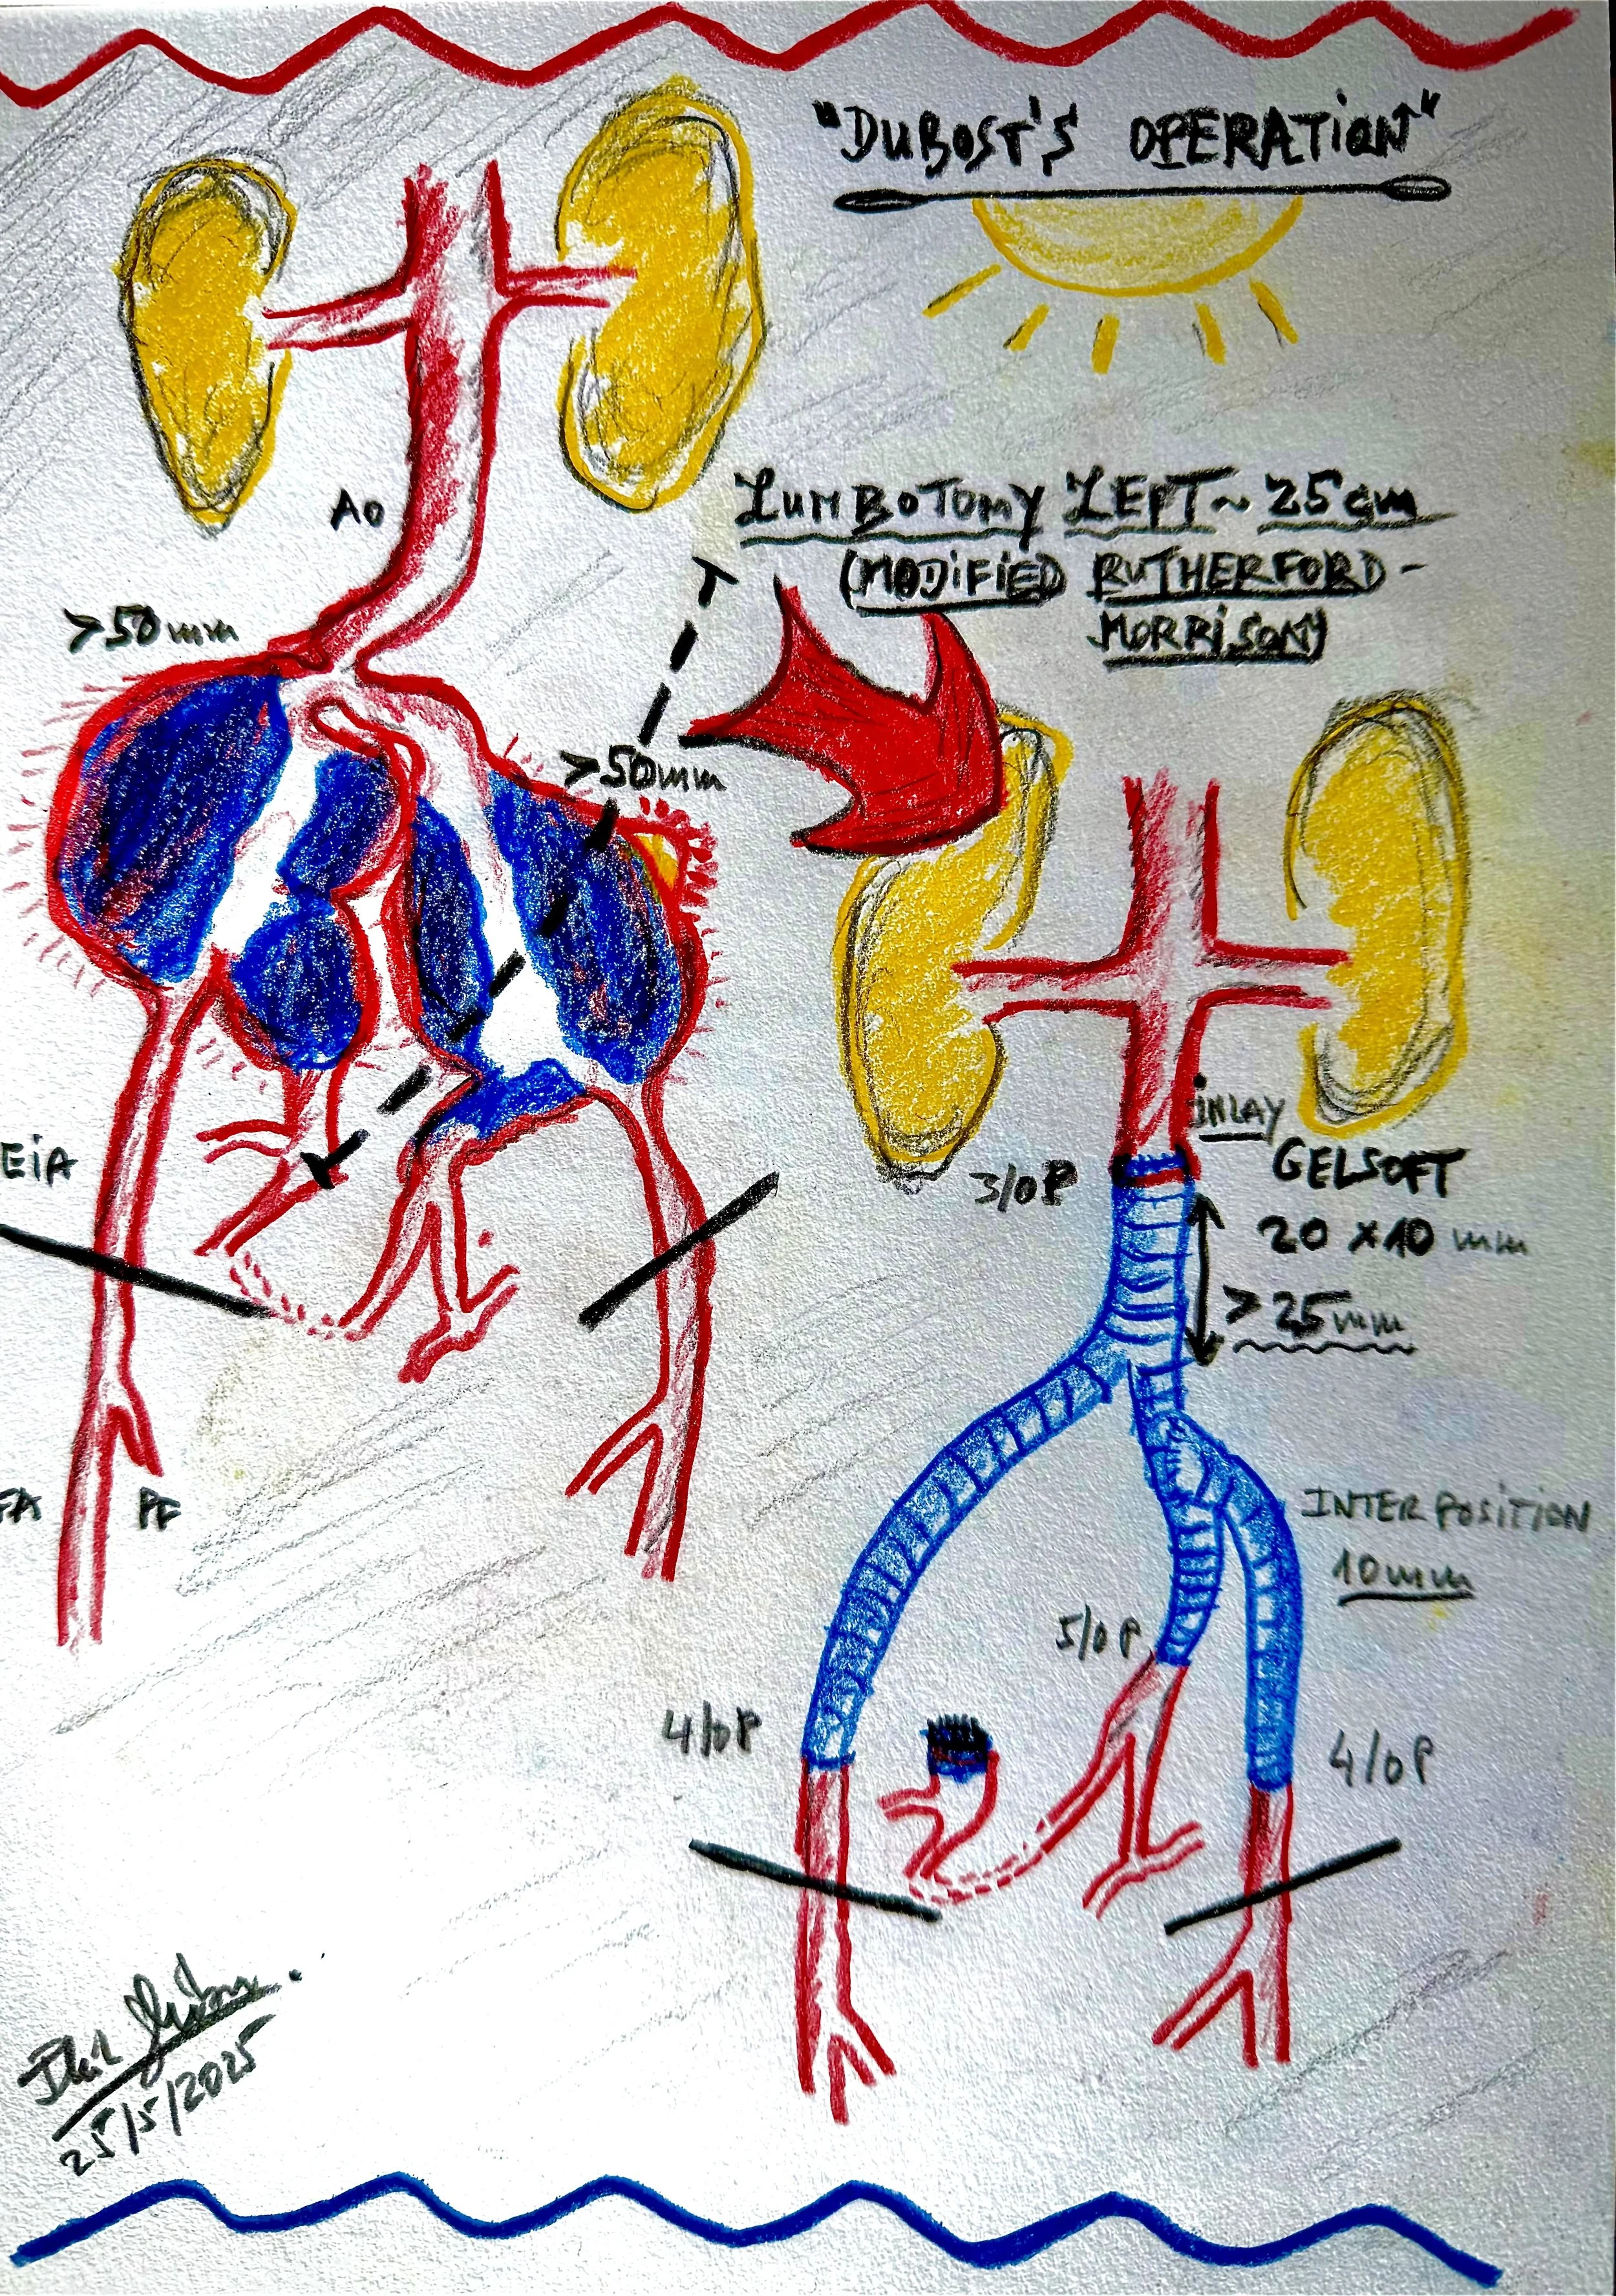 "DUBOST'S OPERATION"
LUMBOTOMY LEFT ~ 25cm
(MODIFIED RUTHERFORD-
MORRISON)
Ao
>50mm
>50mm
EiA
FA
PF
iNLAY
GELSOFT
20 x 10 mm
>25mm
3/0P
INTERPOSITION
10mm
5/0P
4/0P
4/0P
25/5/2025